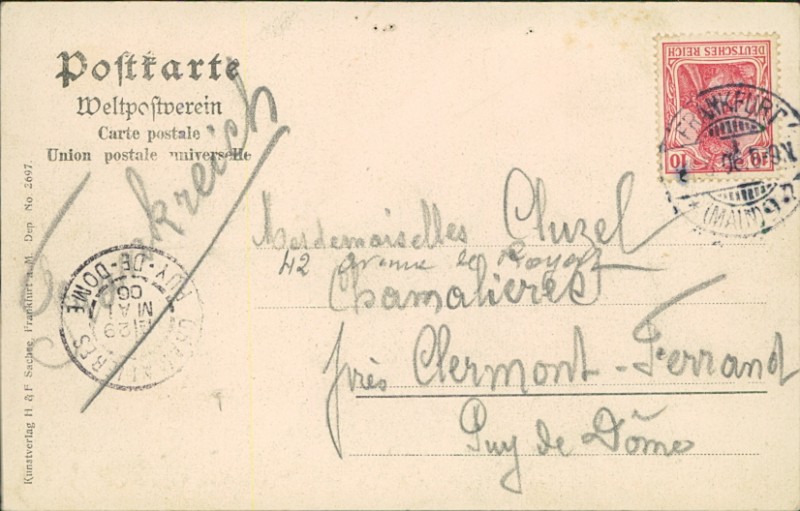 Postkarte
Weltpostverein
Carte postale
Union postale universelle
Frankreich
DEUTSCHES REICH
10 10
FRANKFURT
(MAIN)
Mesdemoiselles Cluzel
42 avenue de Royat
Chamalieres
près Clermont-Ferrand
Puy de Dôme
CHAMALIERES
PUY-DE-DOME
29
MAI
06
Kunstverlag H. & F. Sacher, Frankfurt a. M. Dep No 2697.